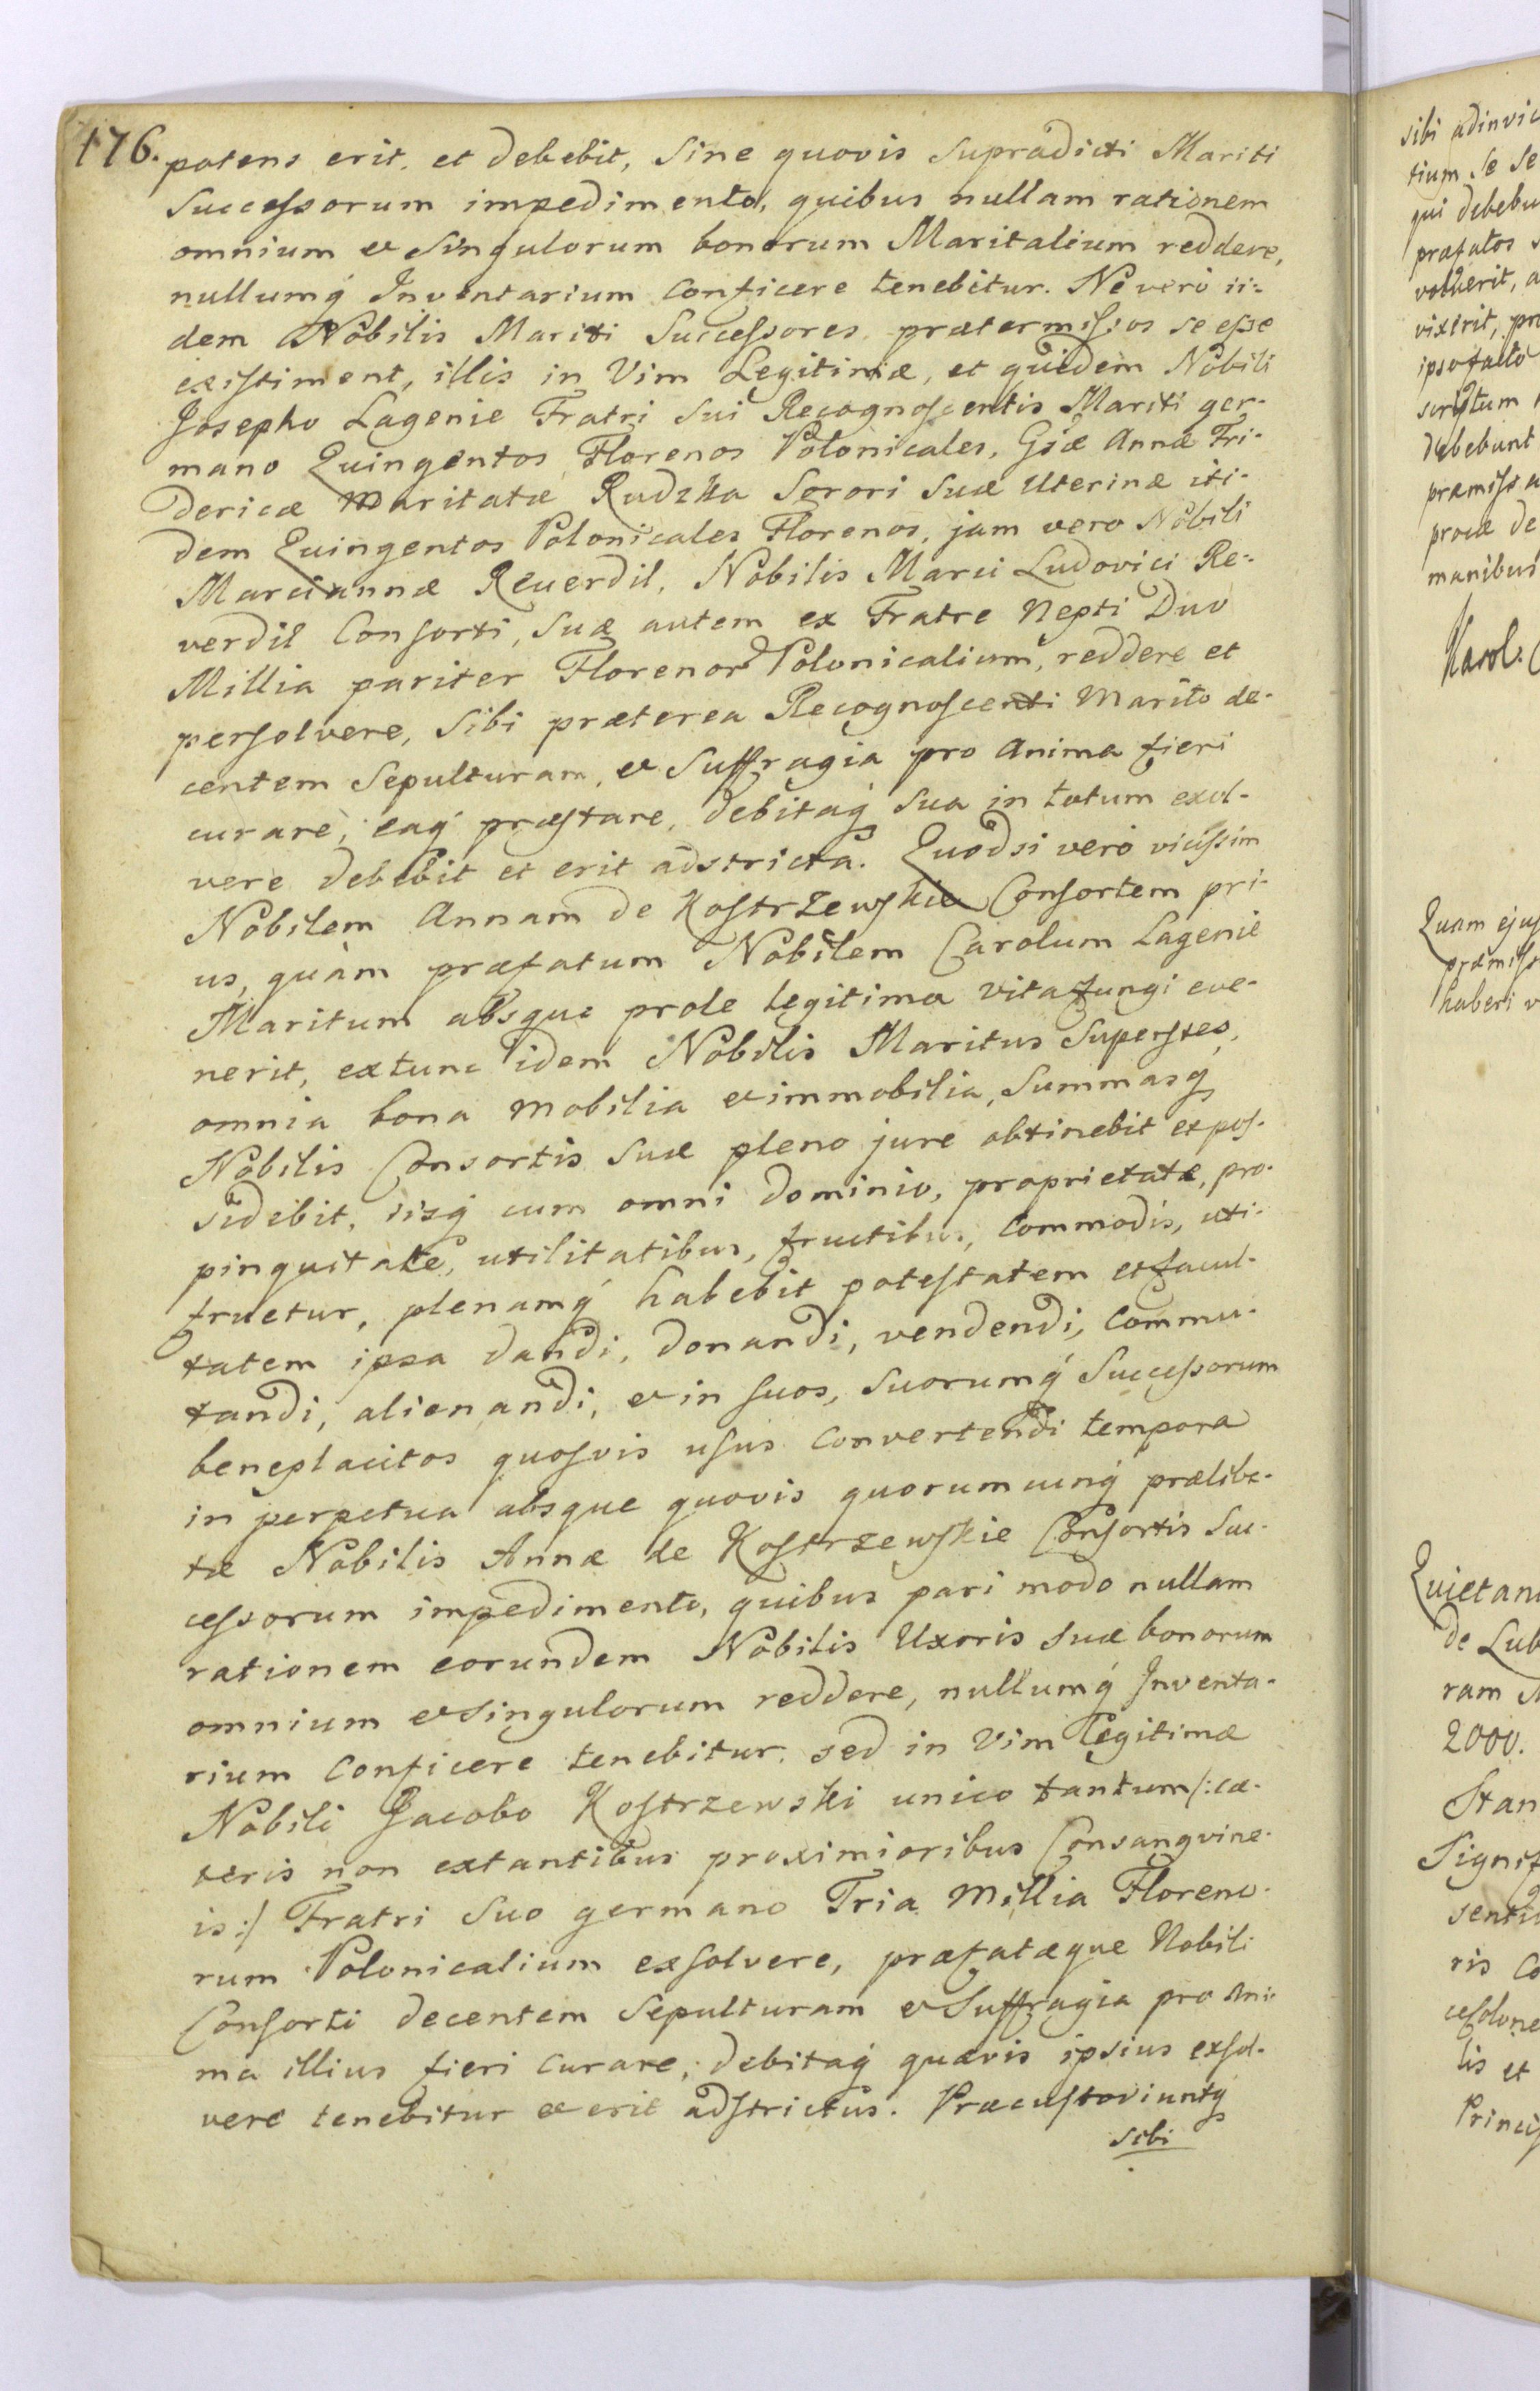 176.
potens erit, et debebit, sine quovis supradicti Mariti
Successorum impedimento, quibus nullam rationem
omnium et singulorum bonorum Maritalium reddere,
nullumq́ Inventarium conficere tenebitur. Ne verò ii-
dem Nobilis Mariti Successores prætermissos se esse
existiment, illis in Vim Legitimæ, et quidem Nobili
Josepho Lagenie Fratri sui Recognoscentis Mariti ger-
mano Quingentos Florenos Polonicales, Gsæ Annæ Fri-
dericæ maritatæ Rudzka Sorori suæ Uterinæ iti-
dem Quingentos Polonicales Florenos, jam vero Nobili
Mariannæ Reverdil, Nobilis Marci Ludovici Re-
verdil Consorti, suæ autem ex Fratre Nepti Duo
Millia pariter Florenor Polonicalium, reddere et
persolvere, sibi præterea Recognoscenti Marito de-
centem Sepulturam, et Suffragia pro Anima fieri
curare, eaq́ præstare, debitaq́ sua in totum exol-
vere debebit et erit adstricta. Quodsi verò vicissim
Nobilem Annam de Kostrzewskie Consortem pri-
us, quàm præfatum Nobilem Carolum Lagenie
Maritum absque prole legitima vita fungi eve-
nerit, extunc idem Nobilis Maritus Superstes,
omnia bona mobilia et immobilia, Summasq́
Nobilis Consortis suæ pleno jure obtinebit et pos-
sidebit, iisq́ cum omni dominio, proprietate, pro-
pinquitate, utilitatibus, fructibus, commodis, uti-
fruetur, plenamq́ habebit potestatem et facul-
tatem ipsa dandi, donandi, vendendi, commu-
tandi, alienandi, et in suos, suorumq́ Successorum
beneplacitos quosvis usus convertendi tempora
in perpetua absque quovis quorumcunq́ præliba-
tæ Nobilis Annæ de Kostrzewskie Consortis Suc-
cessorum impedimento, quibus pari modo nullam
rationem eorundem Nobilis Uxoris suæ bonorum
omnium et singulorum reddere, nullumq́ Inventa-
rium conficere tenebitur. sed in Vim Legitimæ
Nobili Jacobo Kostrzewski unico tantum /:cæ-
teris non extantibus proximioribus Consangvine-
is:/ Fratri suo germano Tria Millia Floreno-
rum Polonicalium exsolvere, præfatæque Nobili
Consorti decentem Sepulturam et Suffragia pro Ani-
ma illius fieri curare, debitaq́ quævis ipsius exsol-
vere tenebitur et erit adstrictus. Præcustodiuntq́
sibi
sibi
tium se se
qui
præfatos
ipso facto
scriptum
debebunt
manibus
Karol.
Quam
haberi
de
ram
2000.
ris
lis et